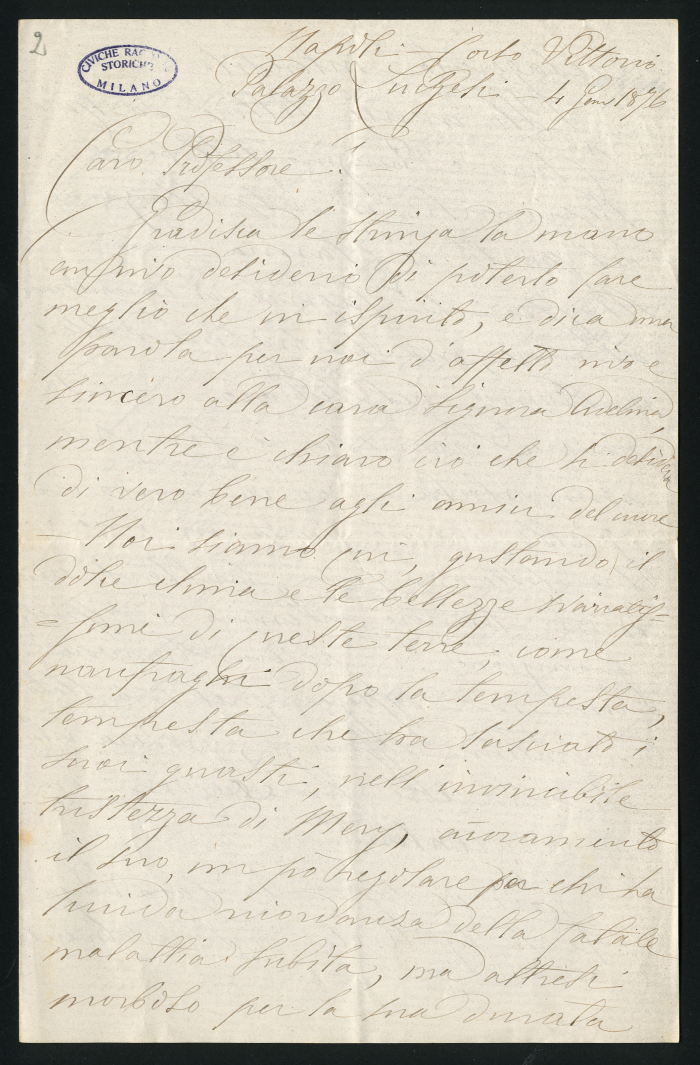 2
CIVICHE RAC
STORICHE
MILANO
Napoli - Corso Vittorio
Palazzo - 4 Gen 1876
Caro Professore!
Gradisca le stringa la mano
con vivo desiderio di poterlo fare
meglio che in ispirito, e dica una
parola per noi d'affetto vivo e
sincero alla cara Signora
mentre è chiaro ciò che si desidera
di vero bene agli amici del cuore
- Noi siamo qui, gustando il
dolce clima e le bellezze svariatis-
=sime di queste terre, come
naufraghi dopo la tempesta,
tempesta che ha lasciato i
suoi guasti, nell'invincibile
tristezza di Mery, accoramento
il suo, un pò regolare per chi ha
lucida ricordanza della fatale
malattia subita, ma altresì
morboso per la sua durata